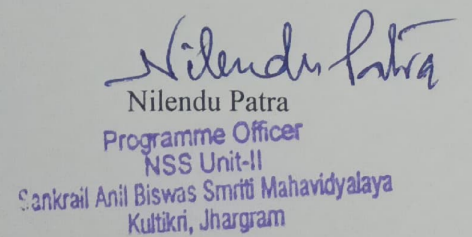 Nilendu Patra
Nilendu Patra
Programme Officer
NSS Unit-II
Sankrail Anil Biswas Smriti Mahavidyalaya
Kultikri, Jhargram